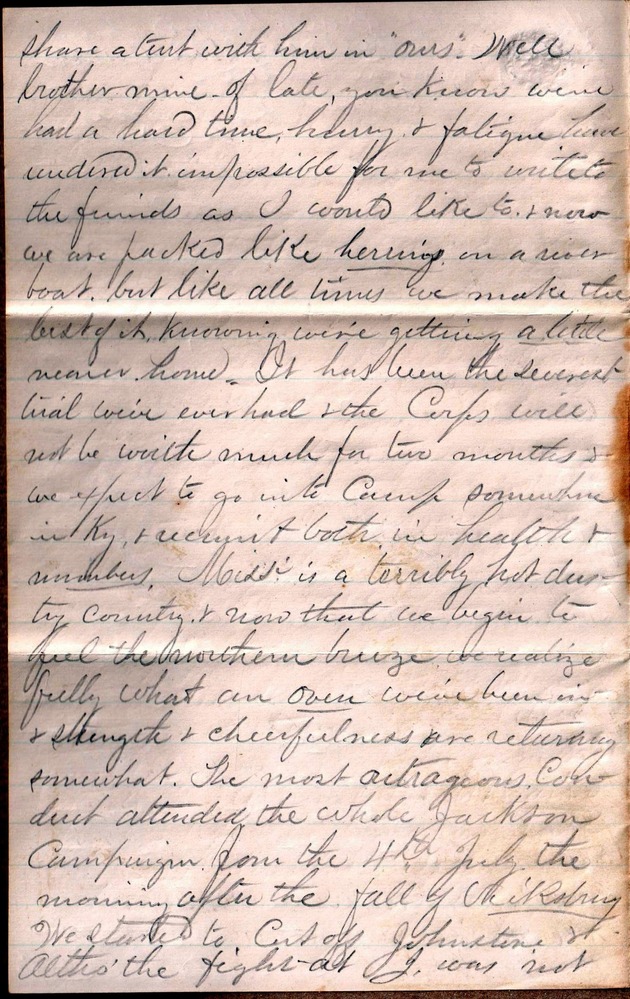 share a tent with him in "ours". Well
brother mine - of late, you know we've
had a hard time, hurry & fatigue have
rendered it impossible for me to write to
the friends as I would like to. & now
we are packed like herring on a river
boat. but like all times we make the
best of it, knowing we're getting a little
nearer home. It has been the severest
trial we've ever had & the Corps will
not be worth much for two months &
we expect to go into Camp somewhere
in Ky, & recruit both in health &
numbers. Miss: is a terribly hot dus-
ty country. & now that we begin to
feel the northern breeze we realize
fully what an oven we've been in
& strength & cheerfulness are returning
somewhat. The most outrageous Con-
duct attended the whole Jackson
Campaign from the 4th July the
morning after the fall of Vicksburg
We started to Cut off Johnston &
Altho' the fight at J. was not